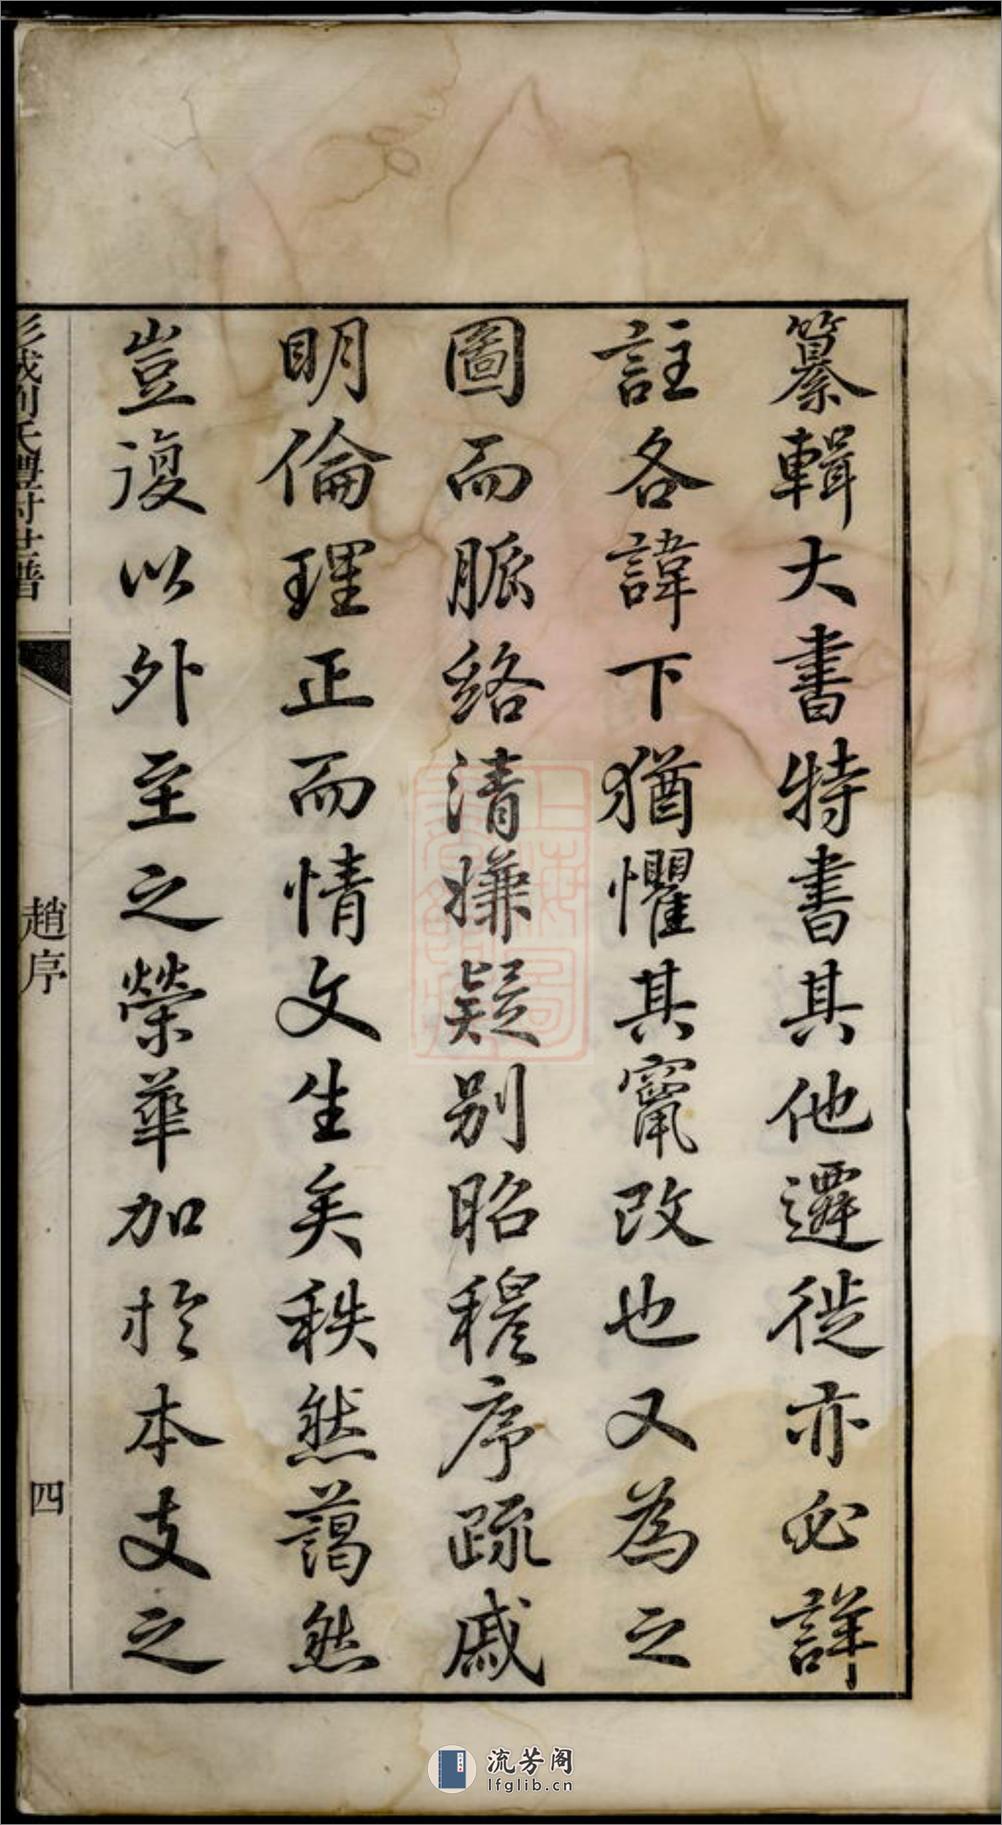 纂輯大書特書其他遷徙亦必詳
註各諱下猶懼其竄改也又為之
圖而脈絡清嫌疑别昭穆序疏戚
明倫理正而情文生矣秩然藹然
豈復以外至之榮華加於本支之
彭城劉氏豐村世譜
趙序
四
流芳阁
lfglib.cn